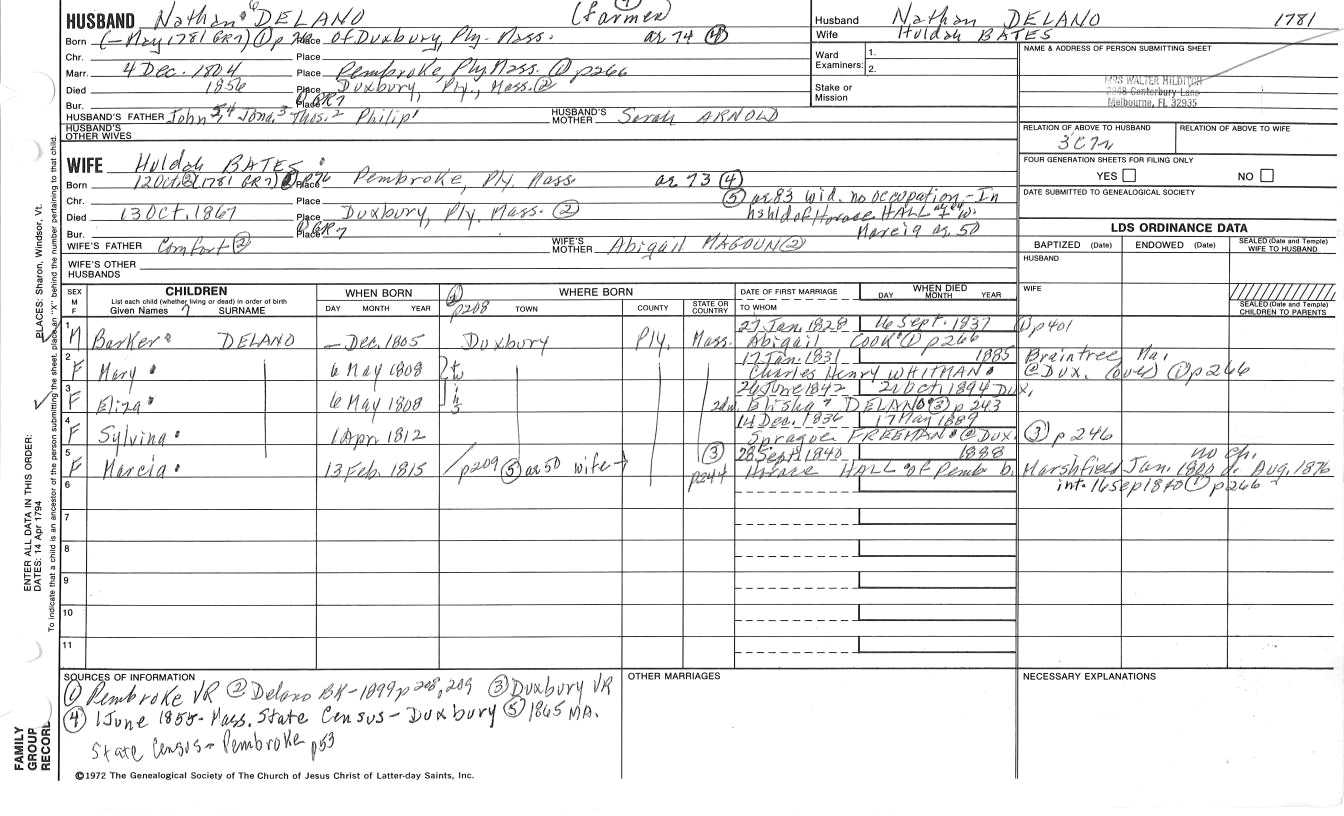 HUSBAND Nathan 6 DELANO (farmer) 4
Husband Nathan DELANO 1781
Wife Huldah BATES
Born (— May 1781 GR7) ① p Place of Duxbury, Ply. Mass. ae 74 ④
Chr. Place
Marr. 4 Dec. 1804 Place Pembroke, Ply. Mass. ① p266
Died 1856 Place Duxbury, Ply., Mass. ②
Bur. Place GR7
Ward Examiners: 1. 2.
Stake or Mission
NAME & ADDRESS OF PERSON SUBMITTING SHEET
MRS WALTER
Canterbury Lane
Melbourne, FL 32935
HUSBAND'S FATHER John 5,4 Jona. 3 Thos. 2 Philip 1 HUSBAND'S MOTHER Sarah ARNOLD
HUSBAND'S OTHER WIVES
RELATION OF ABOVE TO HUSBAND RELATION OF ABOVE TO WIFE
3C7R
FOUR GENERATION SHEETS FOR FILING ONLY
YES NO
DATE SUBMITTED TO GENEALOGICAL SOCIETY
WIFE Huldah BATES
Born 12 Oct. ② (1781 GR7) Place Pembroke, Ply. Mass ae 73 ④
Chr. Place
⑤ ae 83 wid. no occupation - In hshld of Horace HALL + w. Marcia ae. 50
Died 13 Oct. 1867 Place Duxbury, Ply. Mass. ②
Bur. Place GR7
WIFE'S FATHER Comfort ② WIFE'S MOTHER Abigail MAGOUN ②
WIFE'S OTHER HUSBANDS
LDS ORDINANCE DATA
BAPTIZED (Date) ENDOWED (Date) SEALED (Date and Temple) WIFE TO HUSBAND
HUSBAND
WIFE
SEALED (Date and Temple) CHILDREN TO PARENTS
SEX M F
CHILDREN
List each child (whether living or dead) in order of birth
Given Names 7 SURNAME
WHEN BORN
DAY MONTH YEAR
WHERE BORN
② p208 TOWN COUNTY STATE OR COUNTRY
DATE OF FIRST MARRIAGE
TO WHOM
WHEN DIED
DAY MONTH YEAR
1 M Barker DELANO — Dec. 1805 Duxbury Ply. Mass. 27 Jan. 1828 16 Sept. 1837 ① p401
Abigail COOK ① p266
2 F Mary 6 May 1808 tw 17 Jan. 1831 1885 Braintree, Ma.
Charles Henry WHITMAN @ Dux. (over) ① p266
3 F Eliza 6 May 1808 ins 26 June 1842 21 Oct. 1894 Dux.
2dw. Elisha 7 DELANO ③ p243
4 F Sylvina 1 Apr 1812 14 Dec. 1836 17 May 1889
Sprague FREEMAN @ Dux. ③ p246
5 F Marcia 13 Feb. 1815 p209 ⑤ ae 50 wife ③ p244 28 Sept. 1840 1888 no Ch.
Horace HALL of Pemb b. Marshfield Jan. 1800 d. Aug. 1876
int. 16 Sep 1840 ① p266
6
7
8
9
10
11
SOURCES OF INFORMATION
① Pembroke VR ② Delano BK - 1899 p 208, 209 ③ Duxbury VR
④ 1 June 1855 - Mass. State Census - Duxbury ⑤ 1865 MA.
State Census - Pembroke p53
OTHER MARRIAGES
NECESSARY EXPLANATIONS
©1972 The Genealogical Society of The Church of Jesus Christ of Latter-day Saints, Inc.
FAMILY GROUP RECORD
ENTER ALL DATA IN THIS ORDER:
DATES: 14 Apr 1794
PLACES: Sharon, Windsor, Vt.
To indicate that a child is an ancestor of the person submitting the sheet, place an "X" behind the number pertaining to that child.